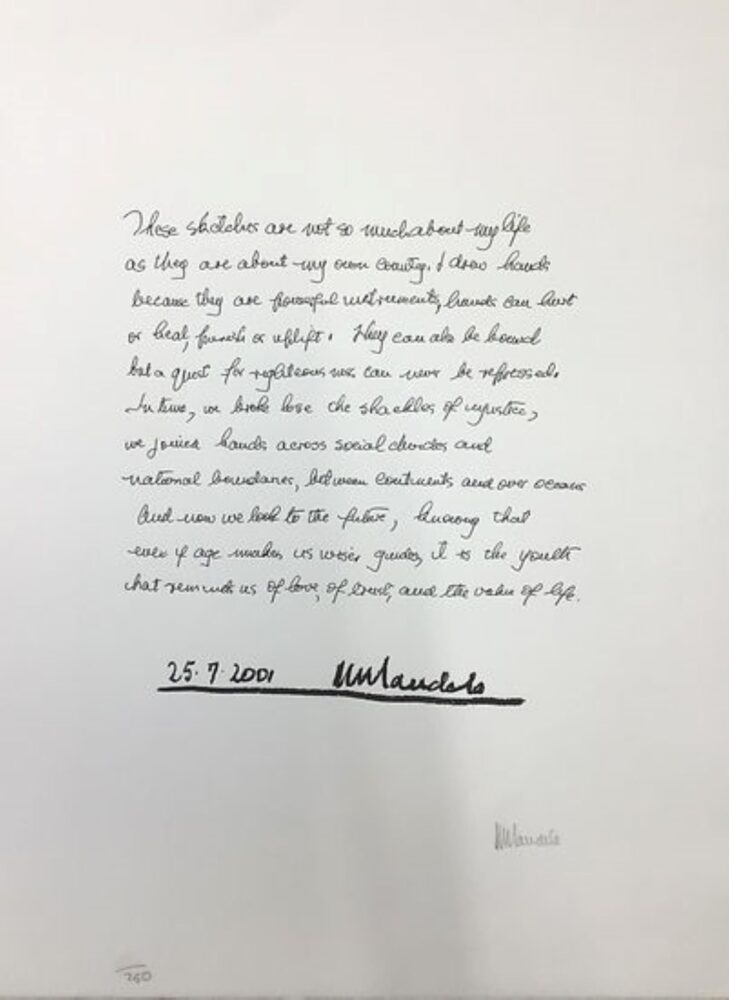 These sketches are not so much about my life
as they are about my own country. I drew hands
because they are powerful instruments, hands can hurt
or heal, punish or uplift. They can also be bound
but a quest for righteousness can never be repressed.
In time, we broke lose the shackles of injustice,
we joined hands across social divides and
national boundaries, between continents and over oceans
And now we look to the future, knowing that
even if age makes us wiser guides, it is the youth
that reminds us of love, of trust, and the value of life.
25.7.2001 NMandela
NMandela
/250